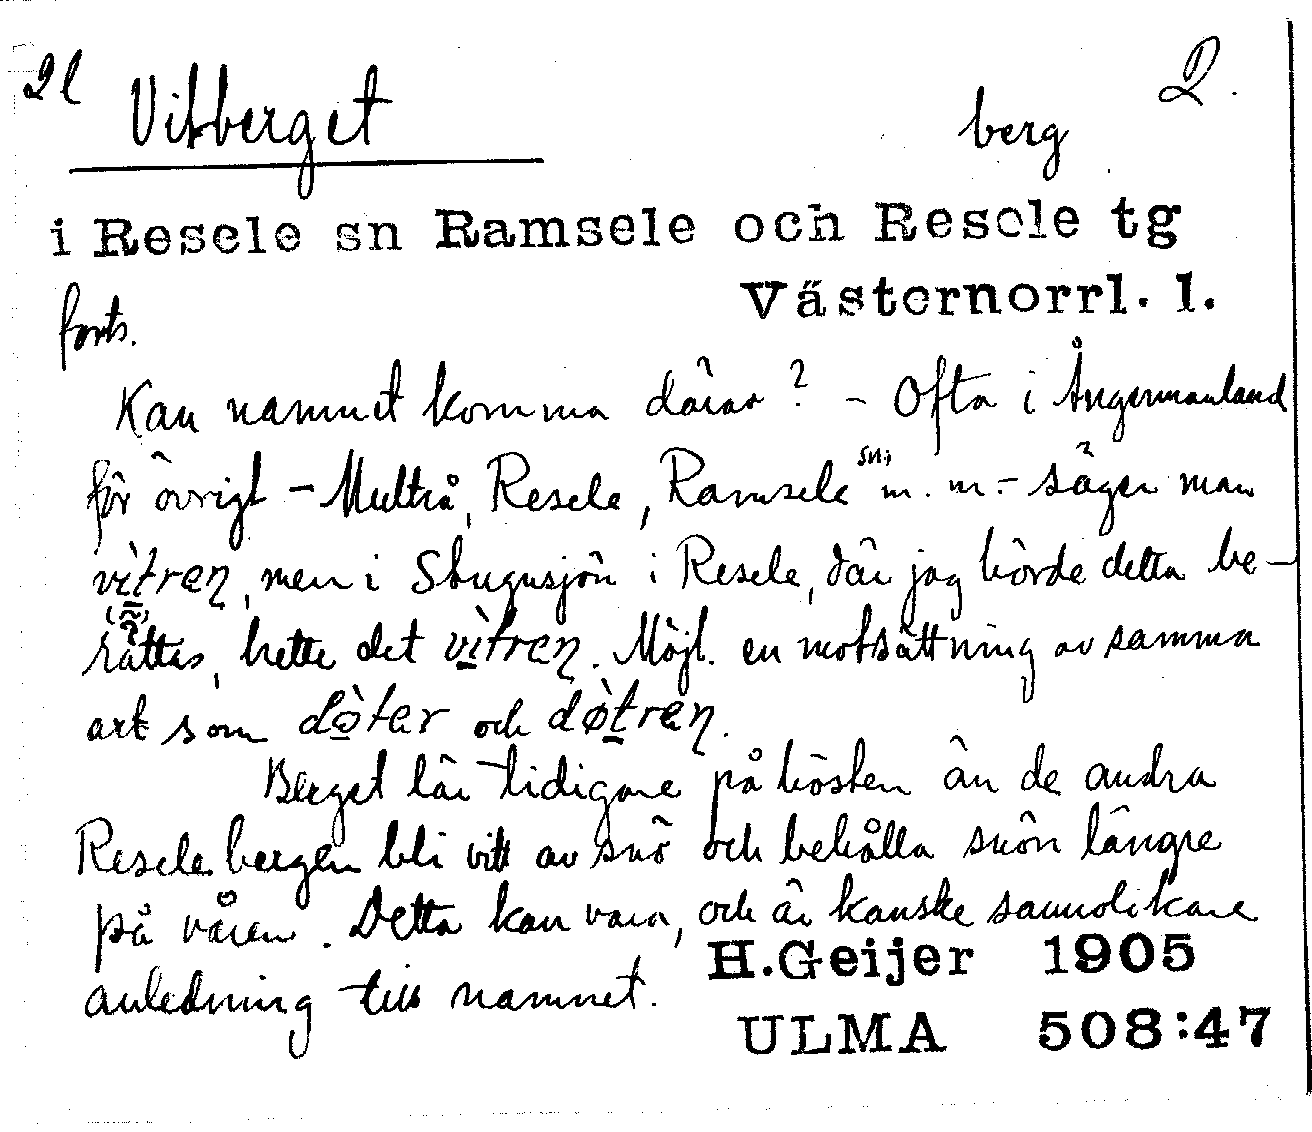 2l Vitberget berg 2.
i Resele sn Ramsele och Resele tg
Västernorrl. l.
forts.
Kan namnet komma därav? - Ofta i Ångermanland
för övrigt - Multrå, Resele, Ramsele sn, m. m. - säger man
vìtren, men i Skugusjön i Resele, där jag hörde detta be-
(~)?
rättas, hette det vìtren. Möjl. en motsättning av samma
art som dö̀ter och dø̀tren.
Berget lär tidigare på hösten än de andra
Reselebergen bli vitt av snö och behålla snön längre
på våren. Detta kan vara, och är kanske sannolikare
anledning till namnet. H.Geijer 1905
ULMA 508:47